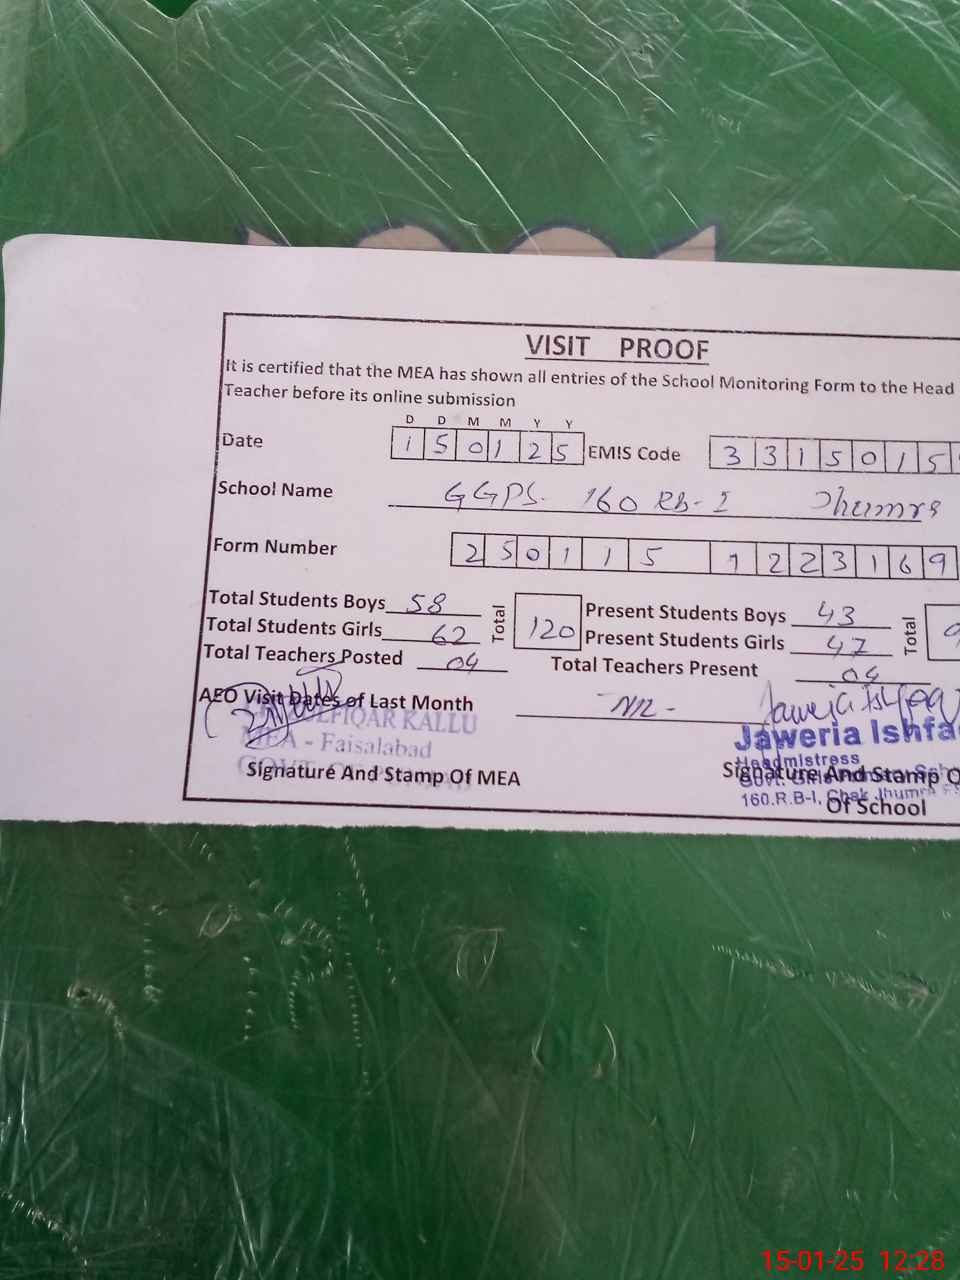 VISIT PROOF
It is certified that the MEA has shown all entries of the School Monitoring Form to the Head
Teacher before its online submission
D D M M Y Y
Date 1 5 0 1 2 5 EMIS Code 3 3 1 5 0 1 5
School Name GGPS. 160 RB-I Jhumra
Form Number 2 5 0 1 1 5 1 2 2 3 1 6 9
Total Students Boys 58 Total 120 Present Students Boys 43 Total 9
Total Students Girls 62 Present Students Girls 47
Total Teachers Posted 04 Total Teachers Present 04
AEO Visit Dates of Last Month Nil - Jaweria Ishfaq
FIQAR KALLU Jaweria Ishfa
MEA - Faisalabad Headmistress
Signature And Stamp Of MEA Signature And Stamp O
160.R.B-I, Chak Jhumra
Of School
15-01-25 12:28